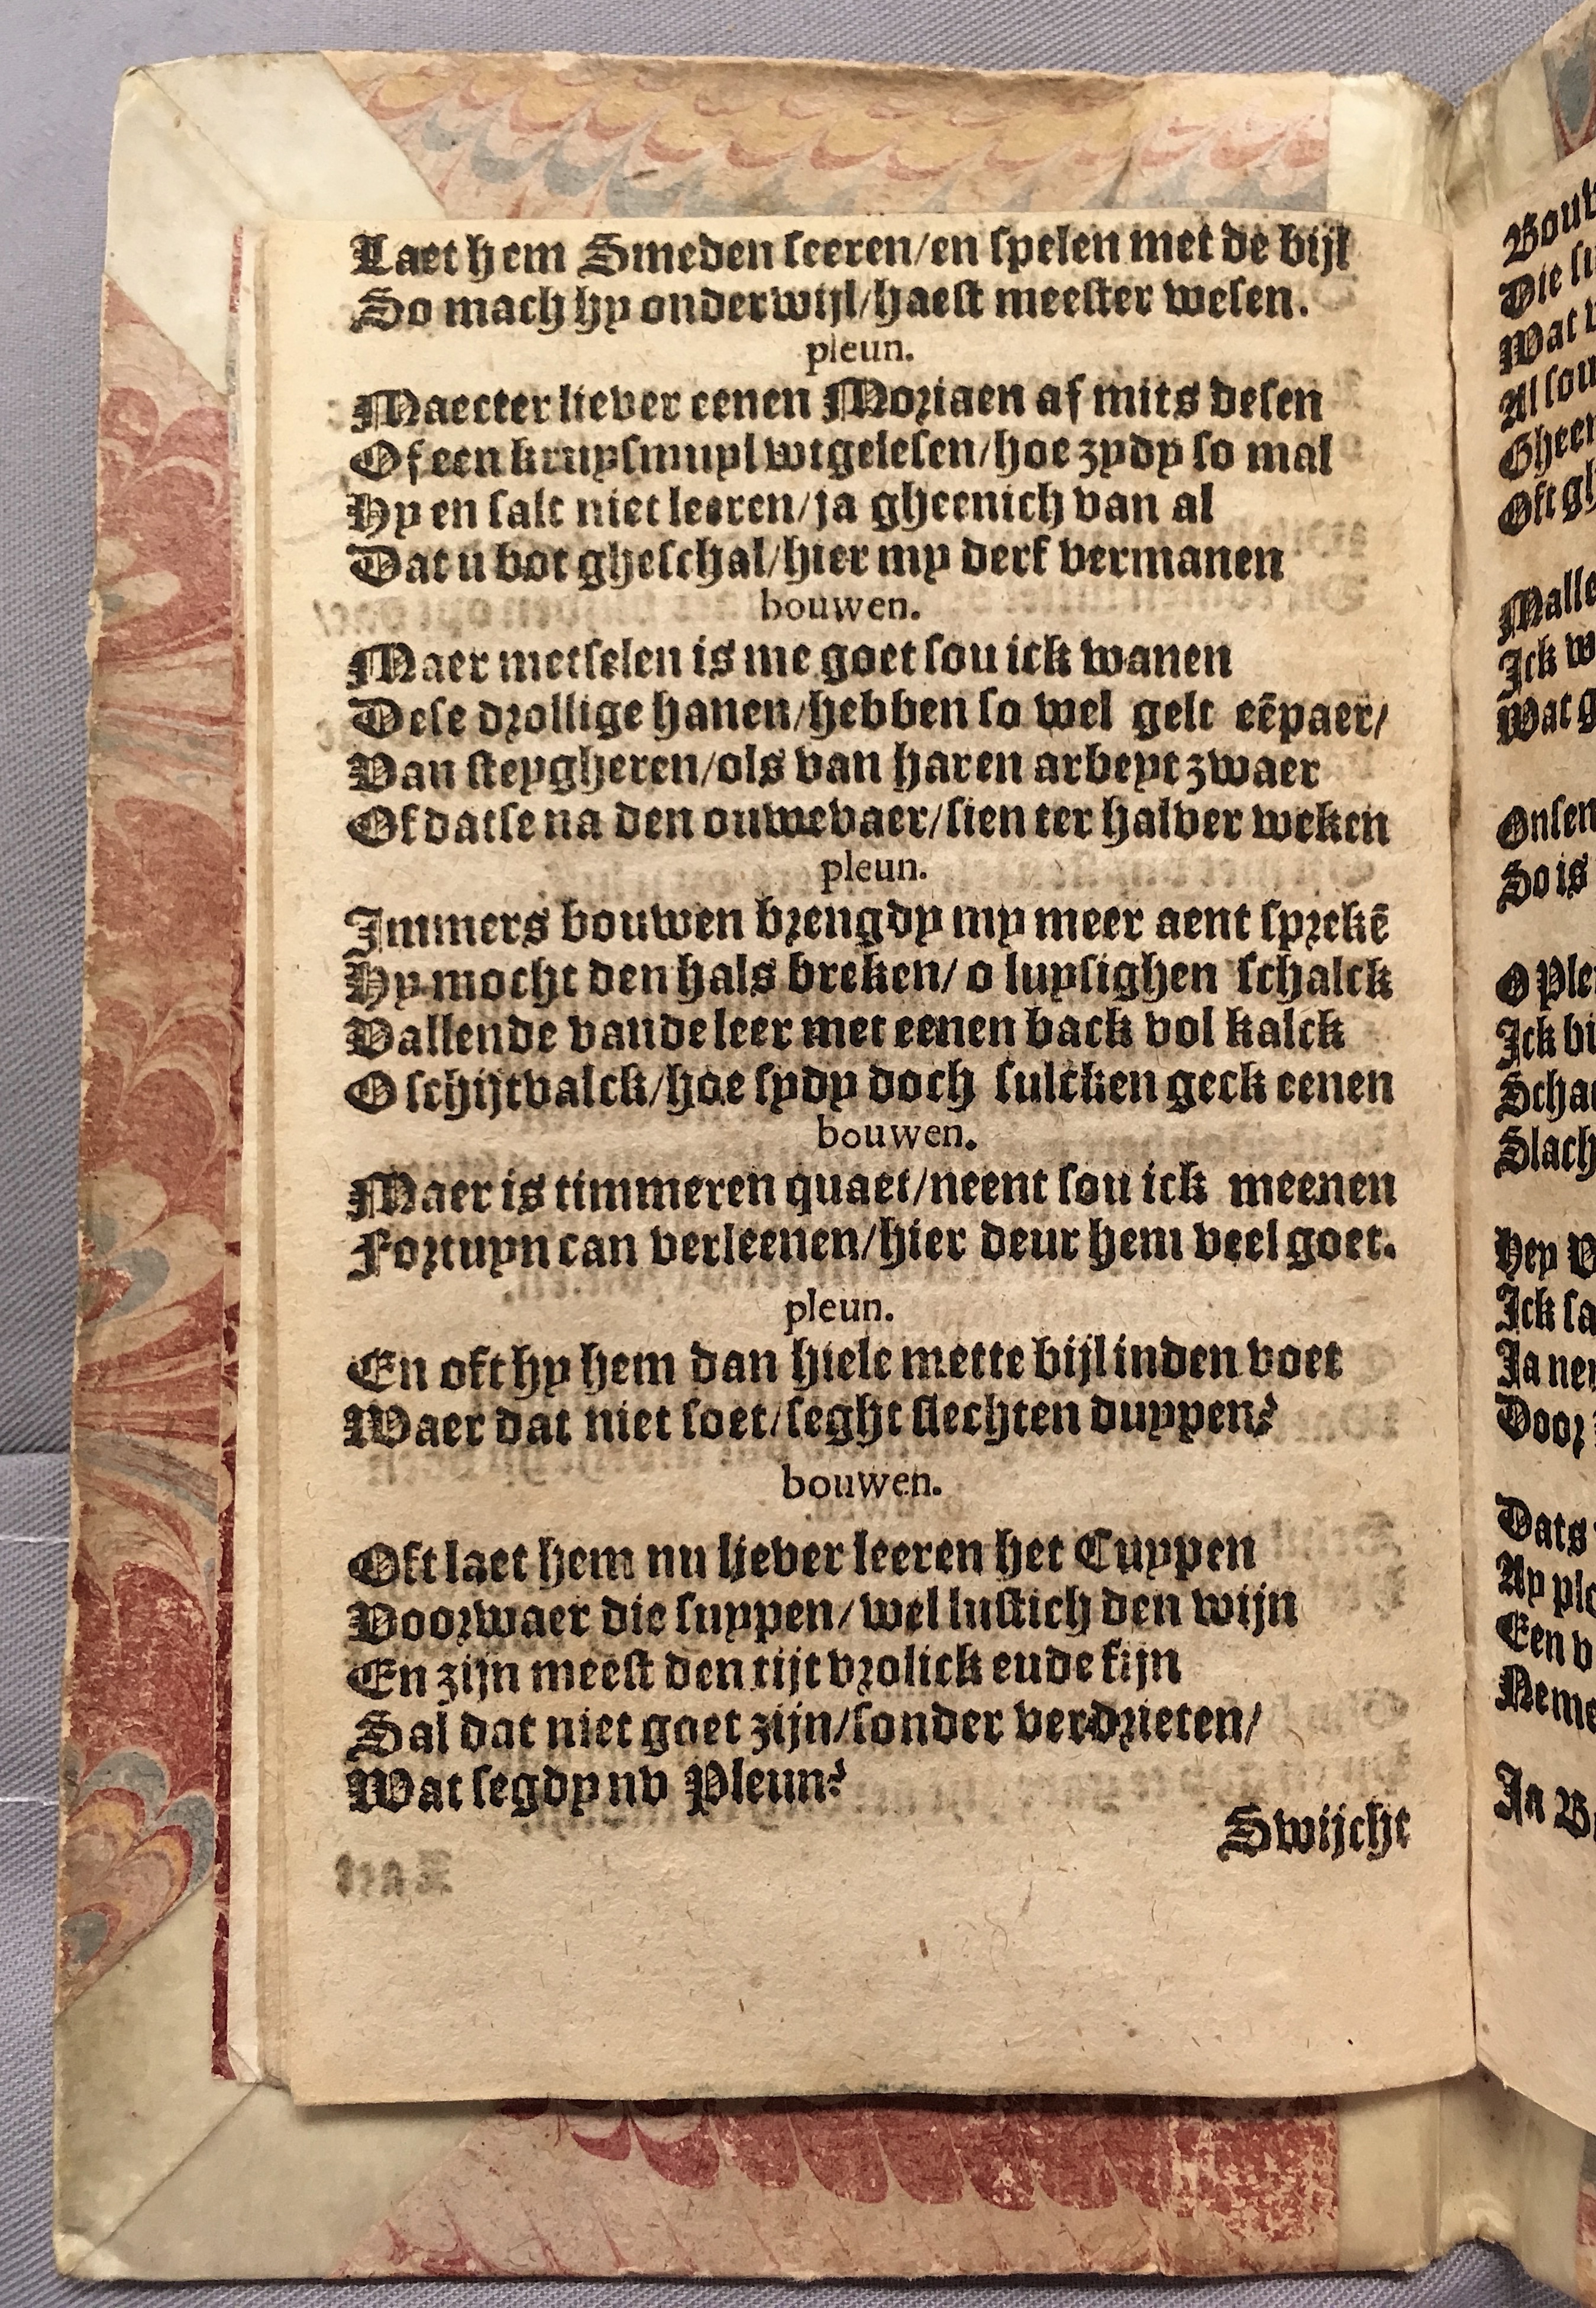 Laet hem Smeden leeren/en spelen met de bijl
So mach hy onderwijl/haest meester wesen.
pleun.
Maecter liever eenen Moriaen af mits desen
Of een kruysmuyl wtgelesen/hoe zydy so mal
Hy en salt niet leeren/ja gheenich van al
Dat u bot gheschal/hier my derf vermanen
bouwen.
Maer metselen is me goet sou ick wanen
Dese drollige hanen/hebben so wel gelt eēpaer/
Van steygheren/ols van haren arbeyt zwaer
Of datse na den ouwevaer/sien ter halver weken
pleun.
Immers bouwen brengdy my meer aent sprekē
Hy mocht den hals breken/ o luysighen schalck
Vallende vande leer met eenen back vol kalck
O schijtvalck/hoe sydy doch sulcken geck eenen
bouwen.
Maer is timmeren quaet/neent sou ick meenen
Fortuyn can verleenen/hier deur hem veel goet.
pleun.
En oft hy hem dan hiele mette bijl inden voet
Waer dat niet soet/seght slechten duyppen?
bouwen.
Oft laet hem nu liever leeren het Cuyppen
Voorwaer die suyppen/wel lustich den wijn
En zijn meest den tijt vrolick eude fijn
Sal dat niet goet zijn/sonder verdrieten/
Wat segdy nv Pleun?
Swijcht
Bouw
Die
Wat
Al sou
Gheen
Oft
Malle
Ick
Wat
Onsen
So is
O
Ick
Hey
Ick
Ja
Door
Dats
Ay
Een
Neme
Ja